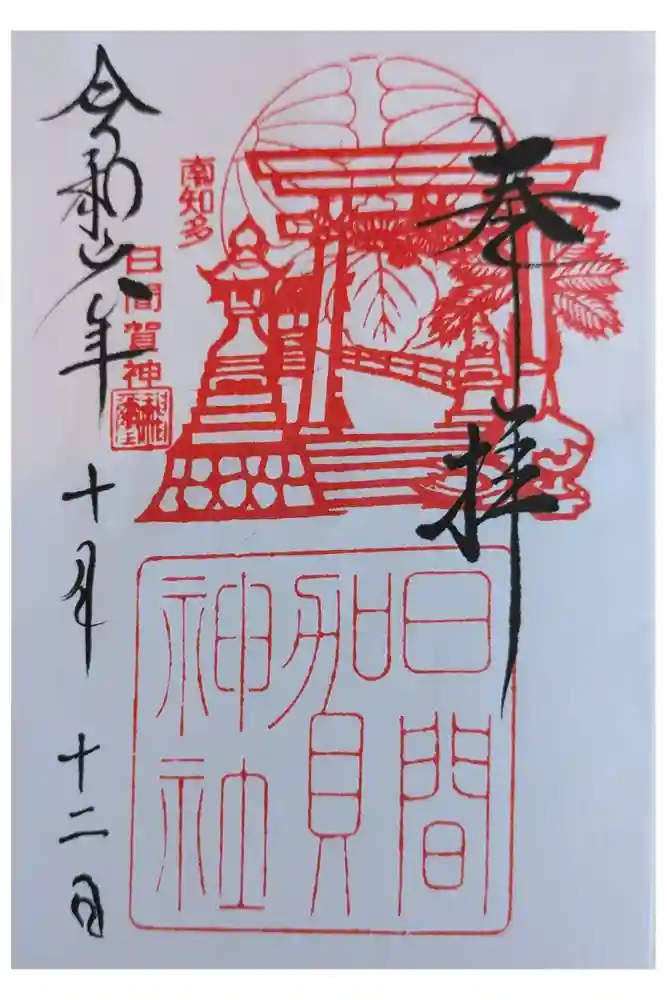 奉拝
南知多
日間賀神社
日間賀神社
令和六年
十月
十二日